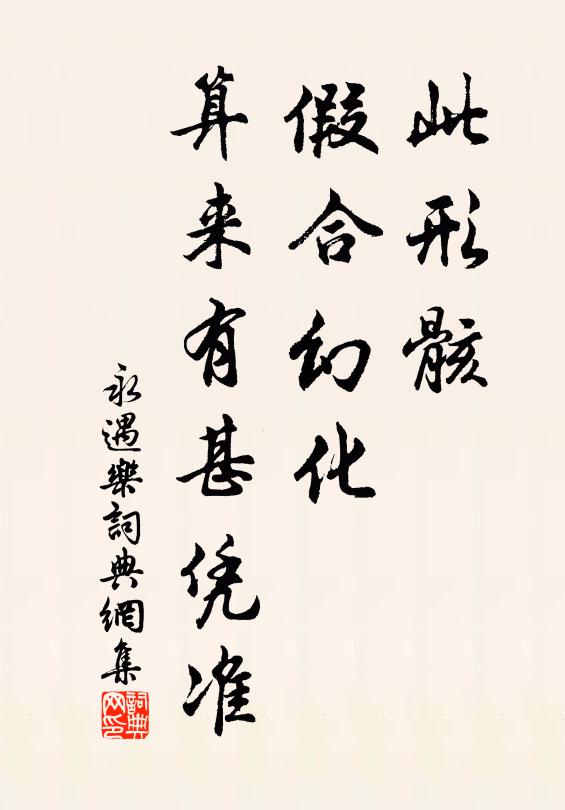 此形骸
假合幻化
算来有甚凭准
永遇樂詞典網集
詞典网印